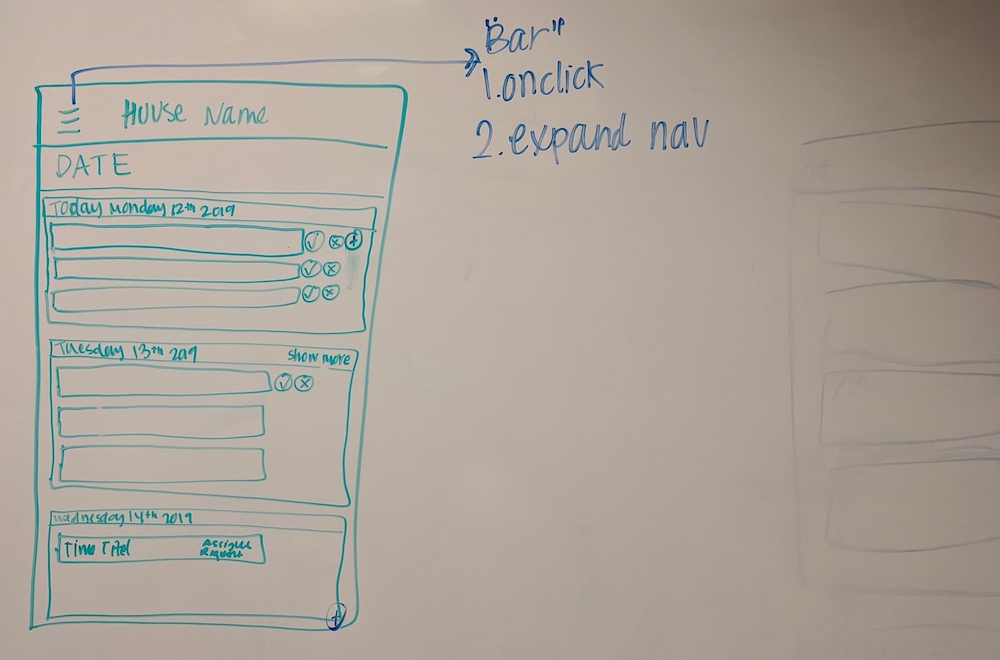 "Bar"
1.onclick
2.expand nav
House Name
DATE
Today Monday 12th 2019
Tuesday 13th 2019
show more
Wednesday 14th 2019
Time Titel